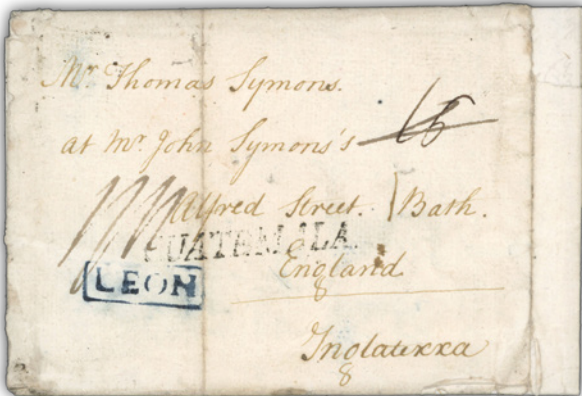 Mr Thomas Symons.
at Mr. John Symons's
Alfred Street. Bath.
GUATEMALA.
England
LEON
Inglaterra